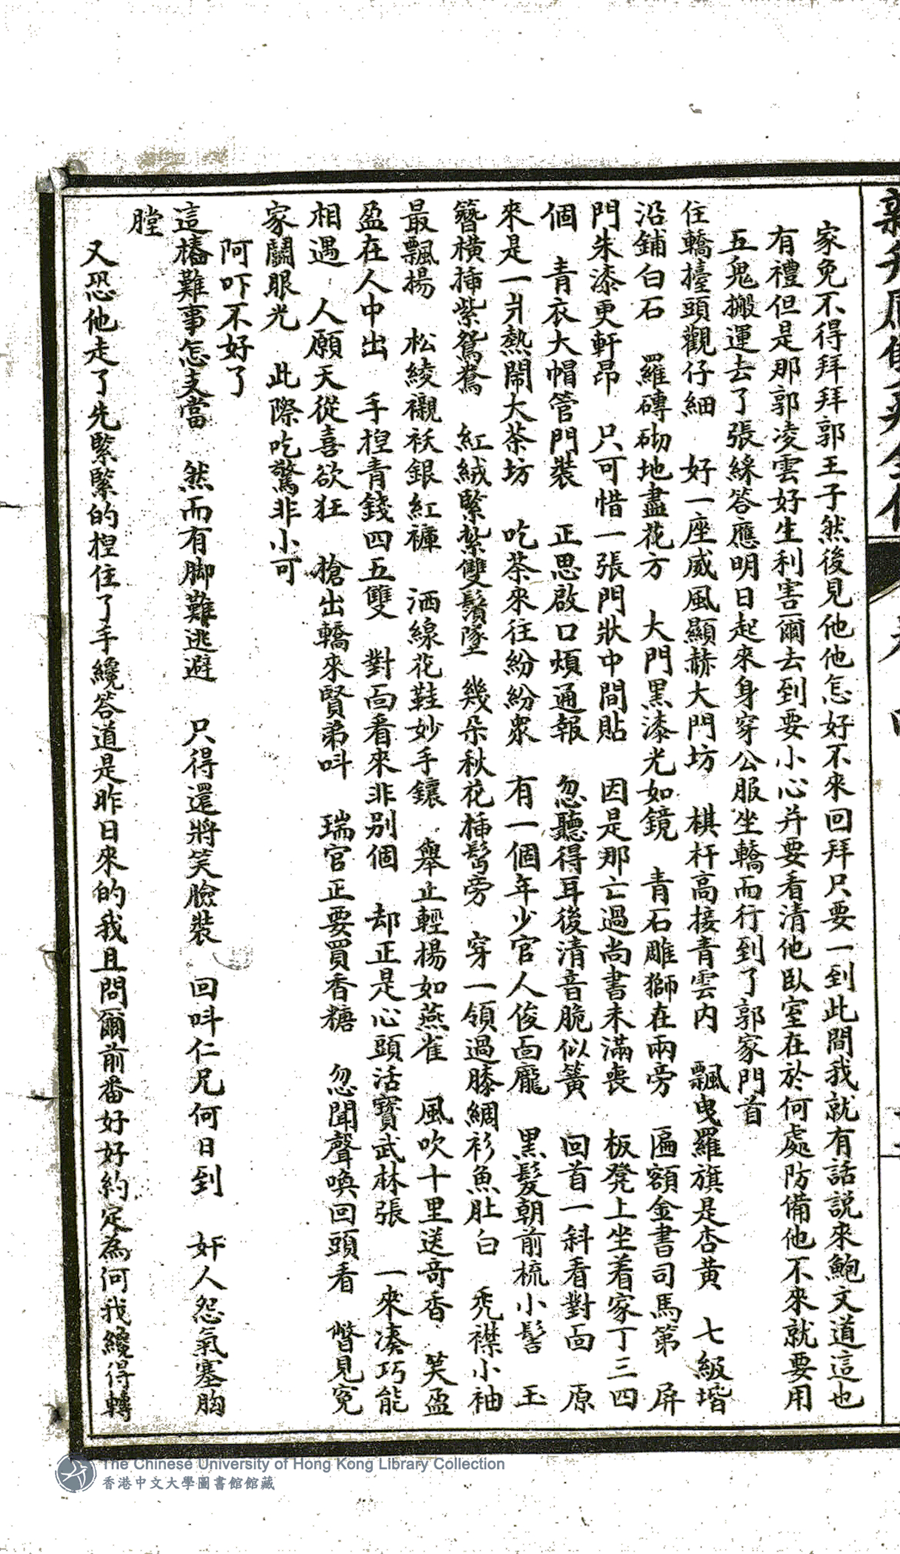 家免不得拜拜郭王子然後見他他怎好不來回拜只要一到此間我就有話説來鮑文道這也
有禮但是那郭凌雲好生利害爾去到要小心并要看清他臥室在於何處防備他不來就要用
五鬼搬運去了張綵答應明日起來身穿公服坐轎而行到了郭家門首
住轎擡頭觀仔細　好一座威風顯赫大門坊　棋杆高接青雲内　飄曳羅旗是杏黃　七級堦
沿鋪白石　羅磚砌地盡花方　大門黑漆光如鏡　青石雕獅在兩旁　匾額金書司馬第　屏
門朱漆更軒昂　只可惜一張門狀中間貼　因是那亡過尚書未滿喪　板凳上坐着家丁三四
個　青衣大帽管門裝　正思啟口煩通報　忽聽得耳後清音脆似簧　回首一斜看對面　原
來是一爿熱鬧大茶坊　吃茶來往紛紛衆　有一個年少官人俊面龐　黑髮朝前梳小髻　玉
簪橫插紫鴛鴦　紅絨緊紮雙鬢墜　幾朵秋花插髻旁　穿一領過膝綢衫魚肚白　禿襟小袖
最飄揚　松綾襯袄銀紅褲　洒線花鞋妙手鑲　舉止輕揚如燕雀　風吹十里送奇香　笑盈
盈在人中出　手揑青錢四五雙　對面看來非别個　却正是心頭活寶武林張　一來凑巧能
相遇　人願天從喜欲狂　搶出轎來賢弟呌　瑞官正要買香糖　忽聞聲喚回頭看　瞥見寃
家鬬眼光　此際吃驚非小可
阿吓不好了
這樁難事怎支當　然而有脚難逃避　只得還將笑臉裝　回呌仁兄何日到　奸人怨氣塞胸
膛
又恐他走了先緊緊的揑住了手纔答道是昨日來的我且問爾前番好好約定為何我纔得轉
The Chinese University of Hong Kong Library Collection
香港中文大學圖書館館藏